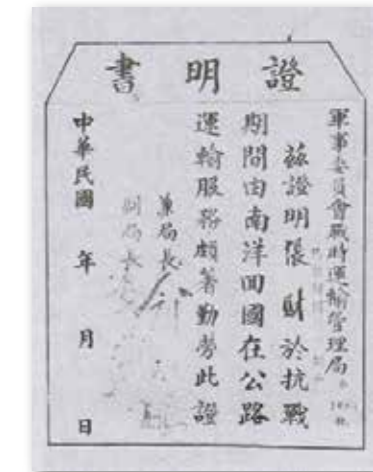 證明書
軍事委員會戰時運輸管理局
茲證明張財於抗戰
期間由南洋回國在公路
運輸服務頗著勤勞此證
兼局長
副局長
中華民國 年 月 日